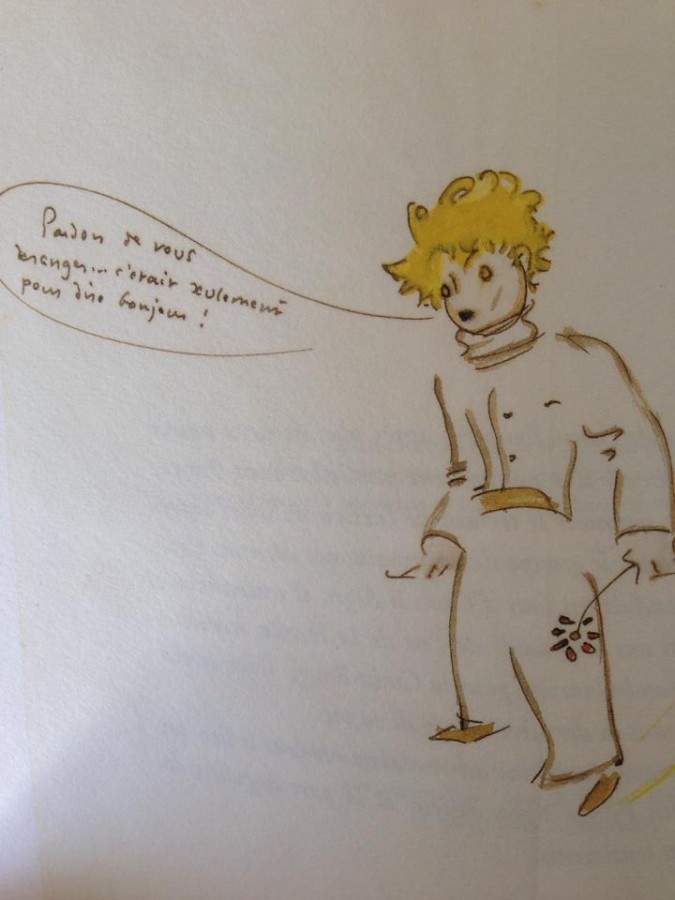 Pardon de vous
déranger... c'était seulement
pour dire bonjour !